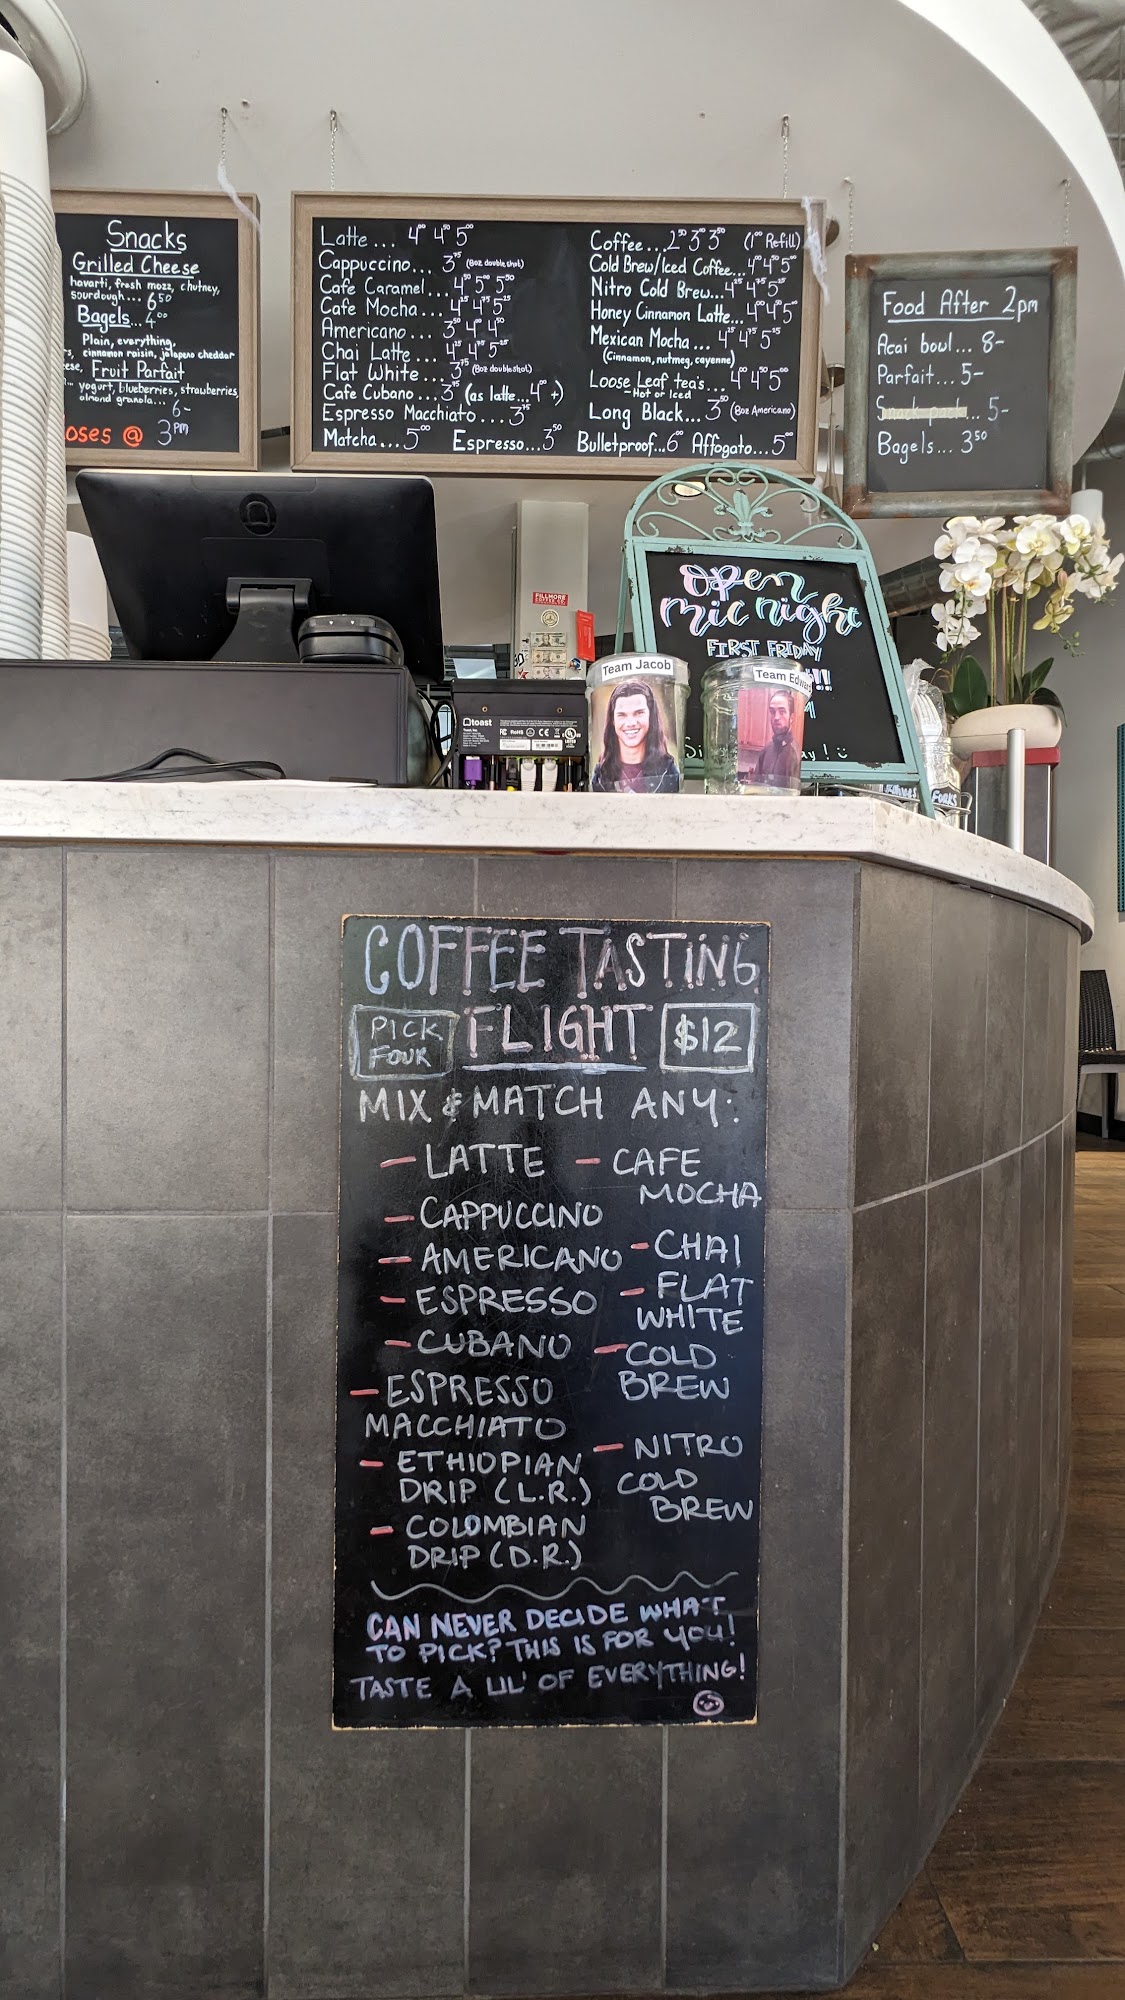 Snacks
Grilled Cheese
havarti, fresh mozz, chutney,
sourdough... 6⁵⁰
Bagels... 4⁰⁰
Plain, everything,
cinnamon raisin, jalapeno cheddar
Fruit Parfait
yogurt, blueberries, strawberries,
almond granola... 6-
oses @ 3PM
Latte... 4⁰⁰ 4⁵⁰ 5⁰⁰
Cappuccino... 3⁷⁵ (8oz double shot)
Cafe Caramel... 4⁵⁰ 5⁰⁰ 5⁵⁰
Cafe Mocha... 4²⁵ 4⁷⁵ 5²⁵
Americano... 3⁵⁰ 4⁰⁰ 4⁵⁰
Chai Latte... 4²⁵ 4⁷⁵ 5²⁵
Flat White... 3⁷⁵ (8oz double shot)
Cafe Cubano... 3⁷⁵ (as latte... 4⁰⁰ +)
Espresso Macchiato... 3⁷⁵
Matcha... 5⁰⁰ Espresso... 3⁵⁰ Bulletproof... 6⁰⁰ Affogato... 5⁰⁰
Coffee... 2⁵⁰ 3⁰⁰ 3⁵⁰ (1⁰⁰ Refill)
Cold Brew/Iced Coffee... 4⁰⁰ 4⁵⁰ 5⁰⁰
Nitro Cold Brew... 4²⁵ 4⁷⁵ 5²⁵
Honey Cinnamon Latte... 4⁰⁰ 4⁵⁰ 5⁰⁰
Mexican Mocha... 4²⁵ 4⁷⁵ 5²⁵
(Cinnamon, nutmeg, cayenne)
Loose Leaf teas... 4⁰⁰ 4⁵⁰ 5⁰⁰
- Hot or Iced
Long Black... 3⁵⁰ (8oz Americano)
Food After 2pm
Acai bowl... 8-
Parfait... 5-
Snack pack... 5-
Bagels... 3⁵⁰
open
mic night
FIRST FRIDAY
!!
FILLMORE
COFFEE CO.
Team Jacob
Team Edwar
toast
RoHS CE
FORKS
COFFEE TASTING
PICK FOUR
FLIGHT
$12
MIX & MATCH ANY:
- LATTE
- CAPPUCCINO
- AMERICANO
- ESPRESSO
- CUBANO
- ESPRESSO
MACCHIATO
- ETHIOPIAN
DRIP (L.R.)
- COLOMBIAN
DRIP (D.R.)
- CAFE
MOCHA
- CHAI
- FLAT
WHITE
- COLD
BREW
- NITRO
COLD
BREW
CAN NEVER DECIDE WHAT
TO PICK? THIS IS FOR YOU!
TASTE A LIL' OF EVERYTHING!